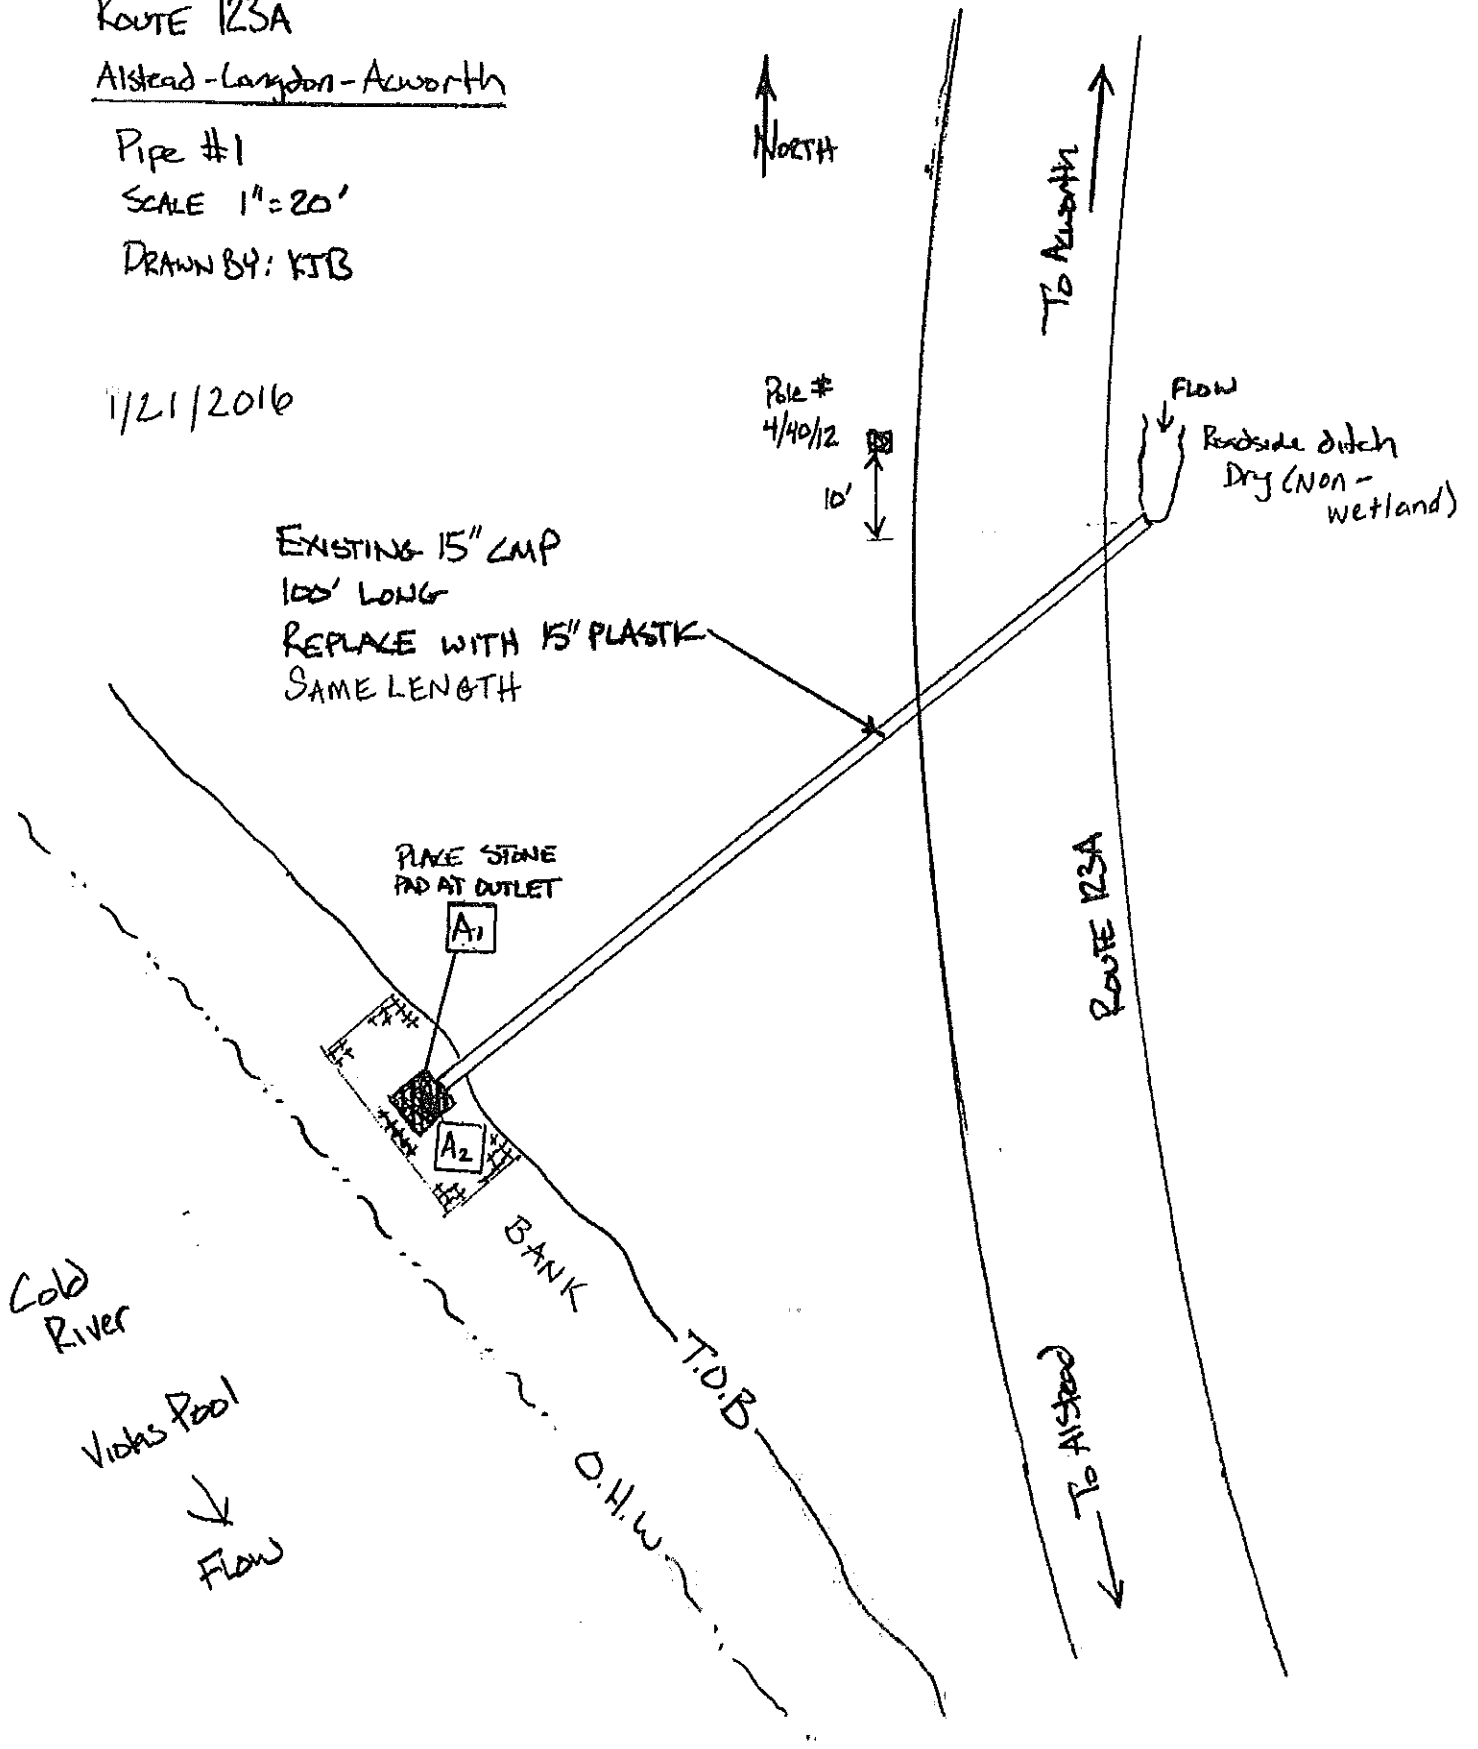 ROUTE 123A
Alstead-Langdon-Acworth
Pipe #1
SCALE 1"=20'
DRAWN BY: KJB
1/21/2016
NORTH
To Acworth
Pole #
4/40/12
10'
FLOW
Roadside ditch
Dry (Non-
wetland)
EXISTING 15" CMP
100' LONG
REPLACE WITH 15" PLASTIC
SAME LENGTH
PLACE STONE
PAD AT OUTLET
A1
A2
ROUTE 123A
BANK
T.O.B
O.H.W
Cold
River
Vilas Pool
Flow
To Alstead